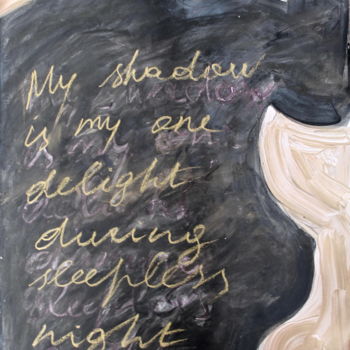 My shadow
is my one
delight
during
sleepless
night